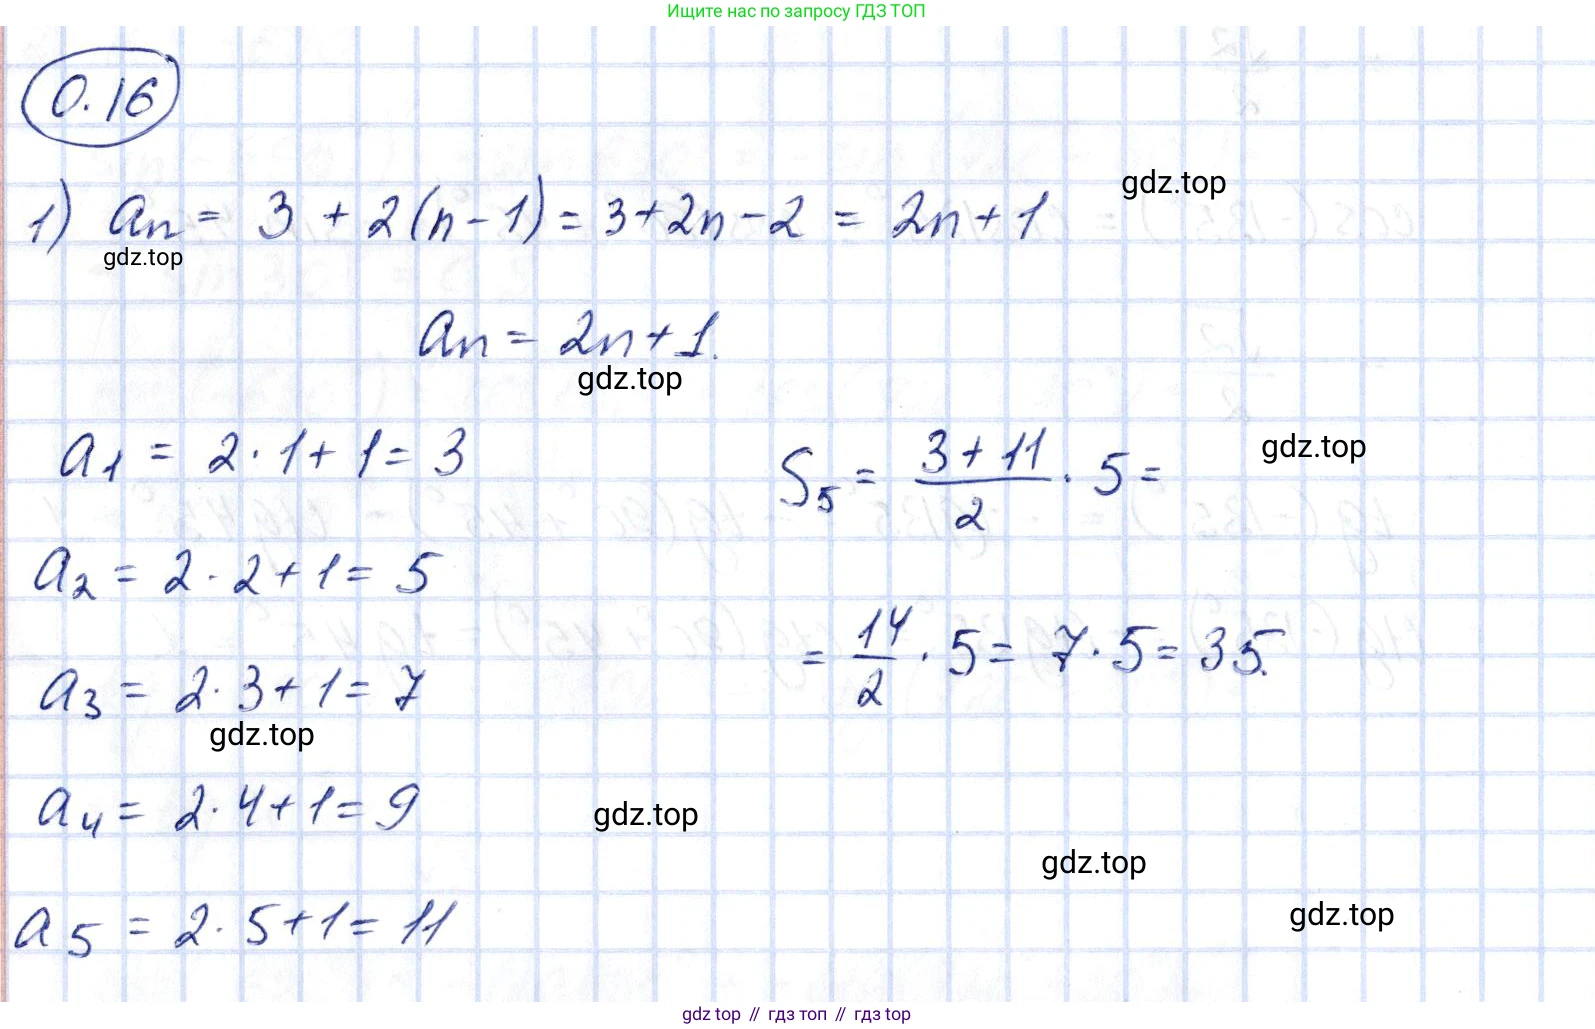 Ищите нас по запросу ГДЗ ТОП
0.16
1) an = 3 + 2(n - 1) = 3 + 2n - 2 = 2n + 1
gdz.top
gdz.top
an = 2n + 1.
gdz.top
a1 = 2 · 1 + 1 = 3
S5 = (3 + 11)/2 · 5 =
gdz.top
a2 = 2 · 2 + 1 = 5
= 14/2 · 5 = 7 · 5 = 35.
a3 = 2 · 3 + 1 = 7
gdz.top
a4 = 2 · 4 + 1 = 9
gdz.top
gdz.top
a5 = 2 · 5 + 1 = 11
gdz.top
gdz top // гдз топ // гдз top